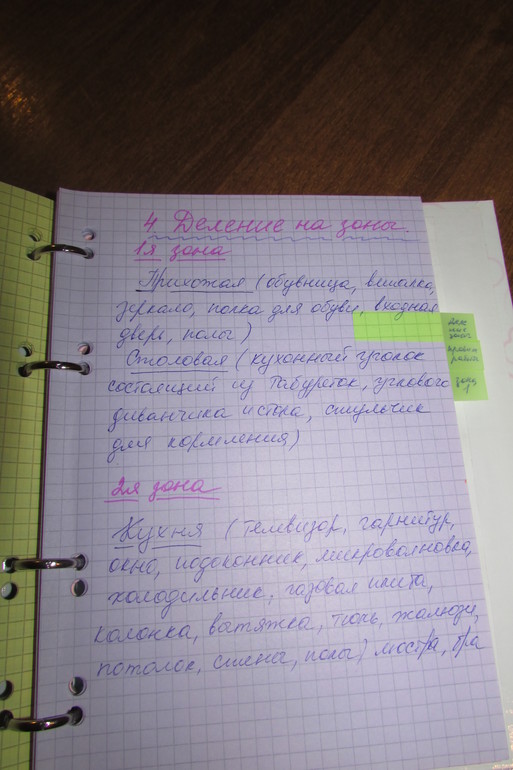 4. Деление на зоны.
1я зона
Прихожая (обувница, вешалка,
зеркало, полка для обуви, входная
дверь, полы)
Столовая (кухонный уголок
состоящий из табуреток, углового
диванчика и стола, стульчик
для кормления)
2я зона
Кухня (телевизор, гарнитур,
окно, подоконник, микроволновка,
холодильник, газовая плита,
колонка, вытяжка, тюль, жалюзи,
потолок, стены, полы) люстра, бра
зоны